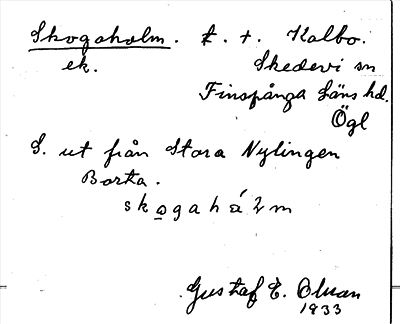 Skogaholm. t. t. Kalbo.
ek. Skedevi sn
Finspånga läns hd.
Ögl
S. ut från Stora Nylingen
Borta.
skogahálm
Gustaf E.
1933